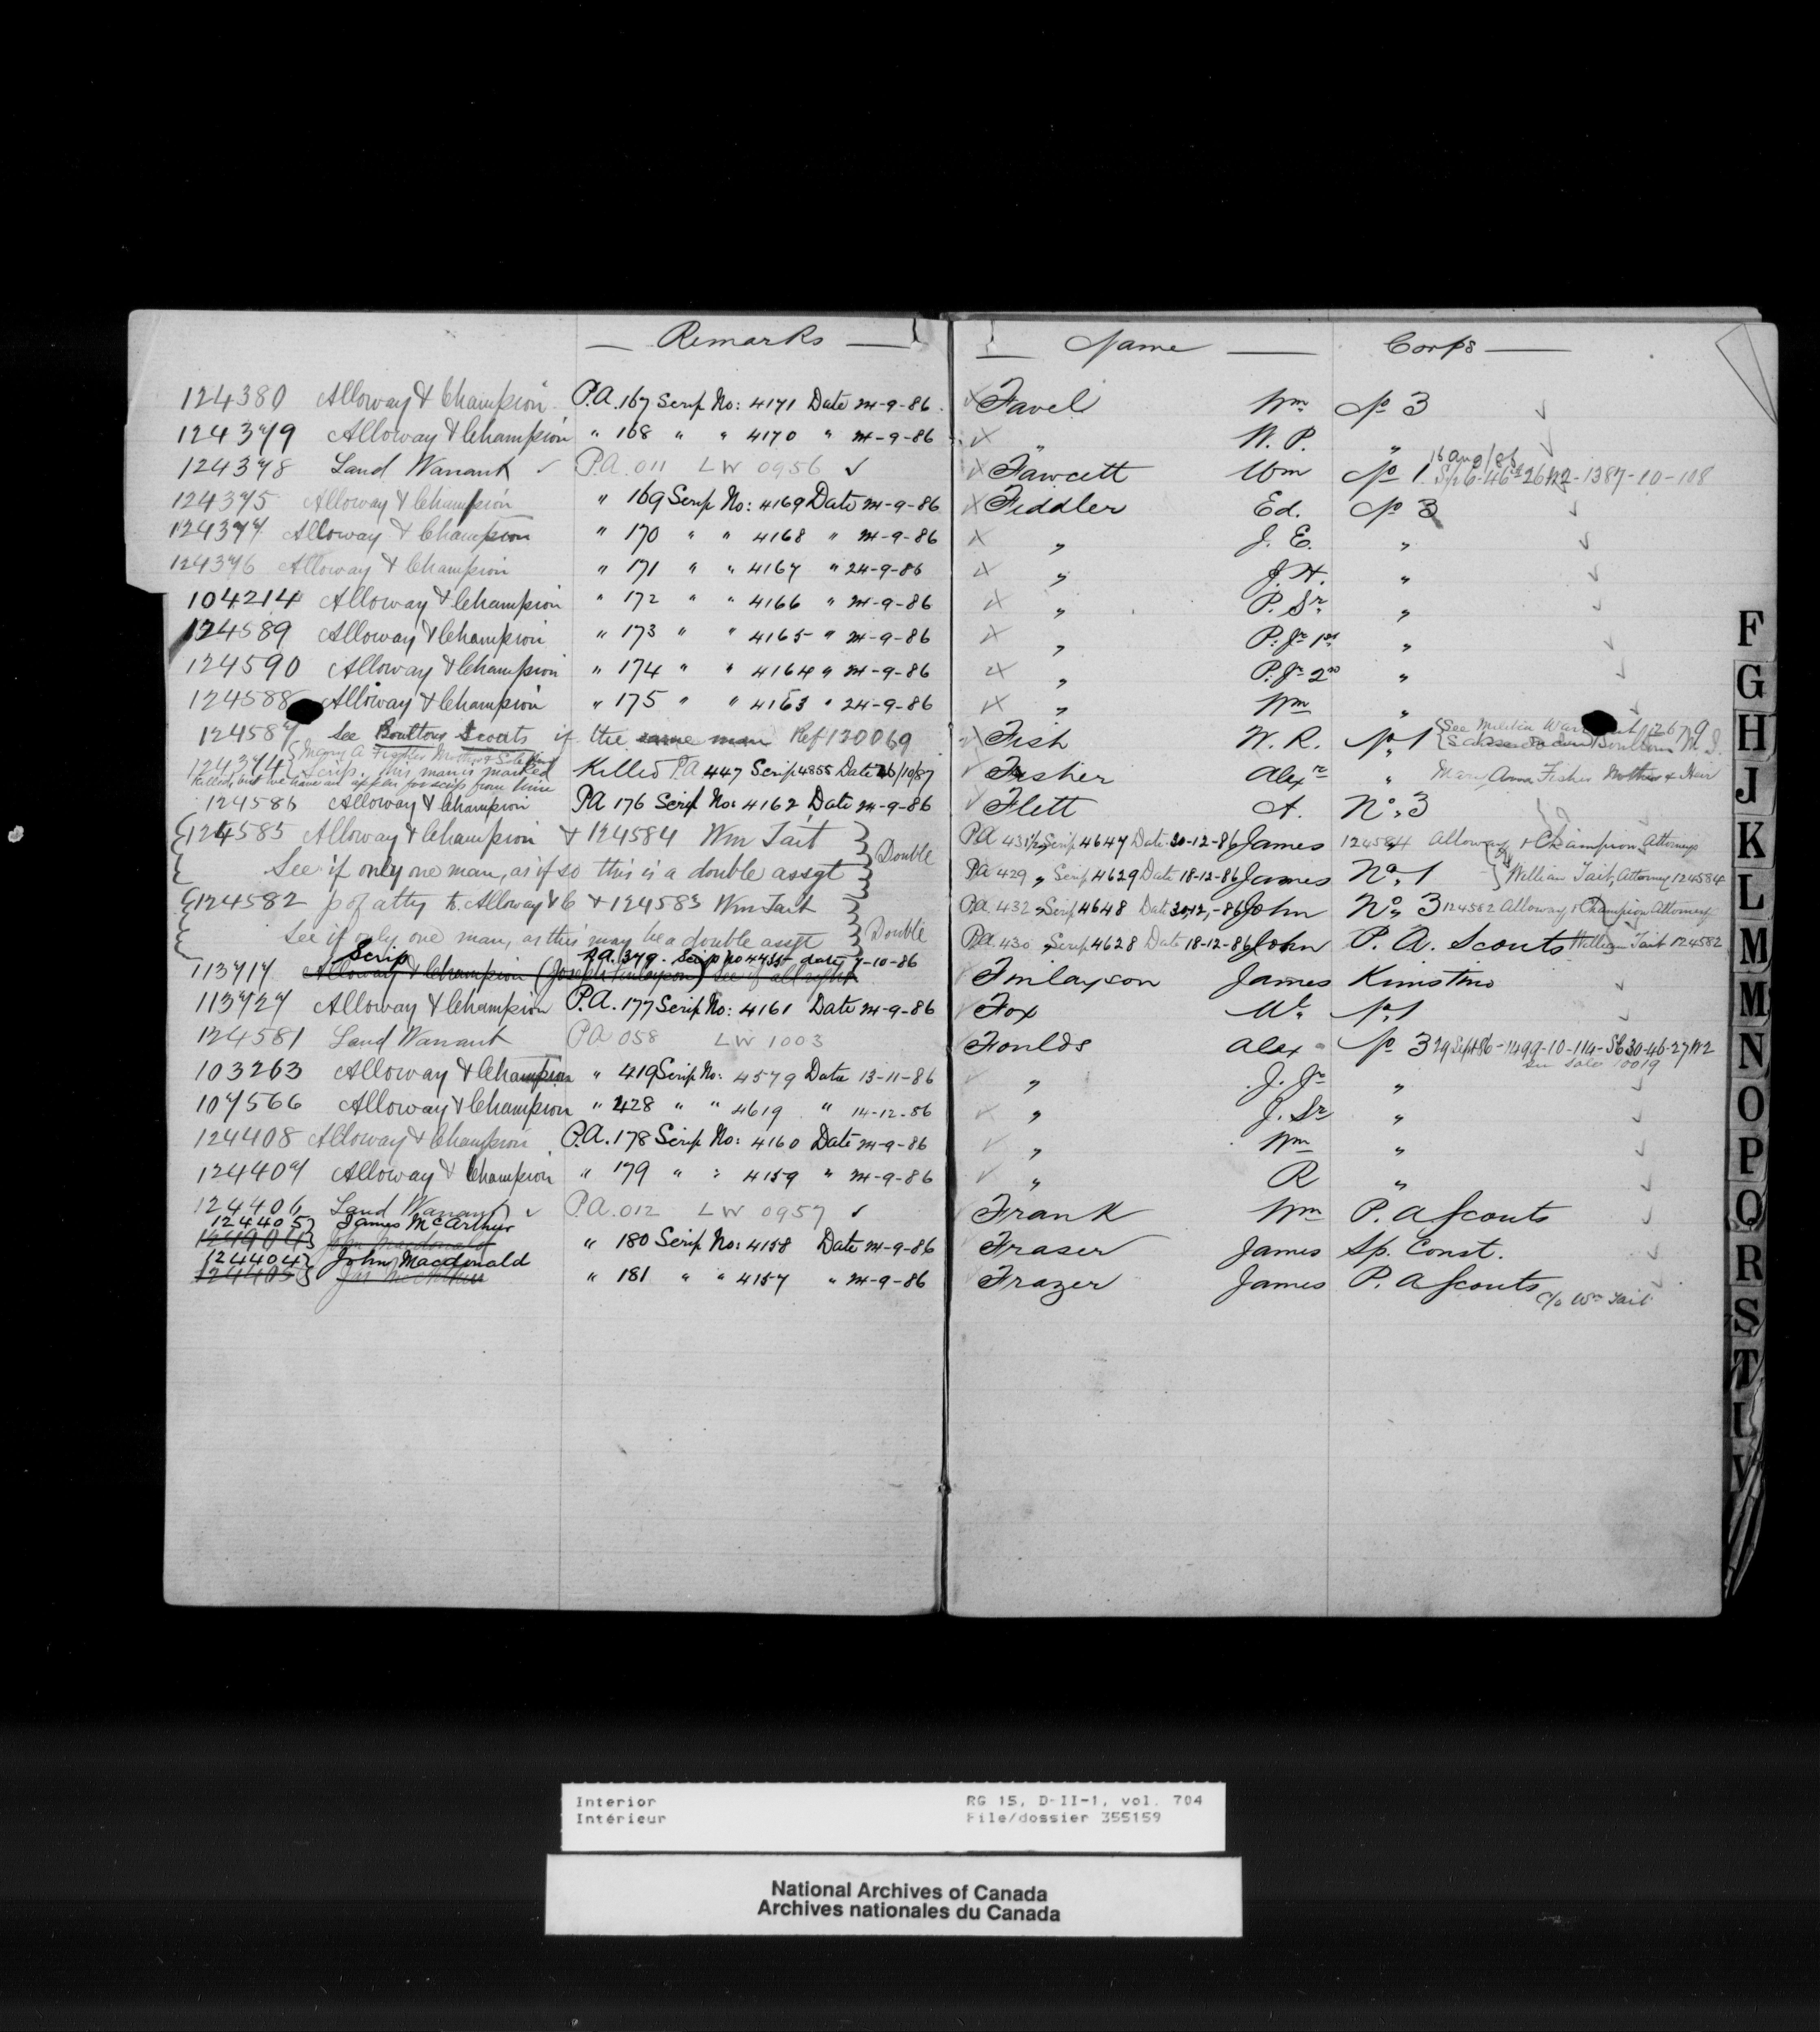 Remarks
124380 Alloway & Champion P.A. 167 Scrip No: 4171 Date 24-9-86
124379 Alloway & Champion " 168 " " 4170 " 24-9-86
124378 Land Warrant ✓ P.A. 011 LW 0956 ✓
124375 Alloway & Champion " 169 Scrip No: 4169 Date 24-9-86
124377 Alloway & Champion " 170 " " 4168 " 24-9-86
124376 Alloway & Champion " 171 " " 4167 " 24-9-86
104214 Alloway & Champion " 172 " " 4166 " 24-9-86
124589 Alloway & Champion " 173 " " 4165 " 24-9-86
124590 Alloway & Champion " 174 " " 4164 " 24-9-86
124588 Alloway & Champion " 175 " " 4163 " 24-9-86
124587 See Boultons Scouts if the same man Ref 130069
Mary A Fisher Mother &
124374 Scrip. This man is marked Killed P.A 447 Scrip 4855 Date 26/10/87
Killed, but we have an appln for scrip from him
124586 Alloway & Champion PA 176 Scrip No: 4162 Date 24-9-86
124585 Alloway & Champion & 124584 Wm Tait
See if only one man, as if so this is a double assgt Double
124582 p of atty to Alloway & C & 124583 Wm Tait
See if only one man, as this may be a double assgt Double
Scrip P.A. 379. Scrip No 4435 date 7-10-86
113717 Alloway & Champion (Joseph Finlayson) See if all right
113727 Alloway & Champion P.A. 177 Scrip No: 4161 Date 24-9-86
124581 Land Warrant PA 058 LW 1003
103263 Alloway & Champion " 419 Scrip No: 4579 Date 13-11-86
107566 Alloway & Champion " 428 " " 4619 " 14-12-86
124408 Alloway & Champion P.A. 178 Scrip No: 4160 Date 24-9-86
124407 Alloway & Champion " 179 " : 4159 " 24-9-86
124406 Land Warrant ✓ P.A. 012 LW 0957 ✓
124405 James McArthur
124904 John Macdonald " 180 Scrip No: 4158 Date 24-9-86
124404 John Macdonald
124405 Jas McArthur " 181 " " 4157 " 24-9-86
Name Corps
Favel Wm No 3
" W. P. "
16 Aug/86
Fawcett Wm No 1 S½ 6-46-26 W2-1387-10-108
Fiddler Ed. No 3
" J. E. "
" J. H. "
" P. Sr. "
" P. Jr 1st "
" P. Jr 2nd "
" Wm "
Fish W. R. No 1 See Militia Warrant 1267
Boulton M. I.
Fisher Alexr " Mary Anna Fisher Mother & Heir
Flett A. No. 3
PA 431½ Scrip 4647 Date 30-12-86 James 124584 Alloway & Champion Attorneys
PA 429 " Scrip 4629 Date 18-12-86 James No. 1 William Tait, Attorney 124584
P.A. 432 " Scrip 4648 Date 30,12,-86 John No. 3 124582 Alloway & Champion Attorneys
P.A. 430 " Scrip 4628 Date 18-12-86 John P. A. Scouts William Tait 124582
Finlayson James Kinistino
Fox W. No 1
Foulds Alex No 3 29 Sept 86-1499-10-114-S½ 30-46-27 W2
See Sale 10019
" J. Jr "
" J. Sr "
" Wm "
" R "
Frank Wm P. A Scouts
Fraser James Sp. Const.
Frazer James P. A Scouts
C/o Wm Tait
F
G
H
J
K
L
M
M
N
O
P
Q
R
S
T
L
V
Interior
Intérieur
RG 15, D-II-1, vol. 704
File/dossier 355159
National Archives of Canada
Archives nationales du Canada